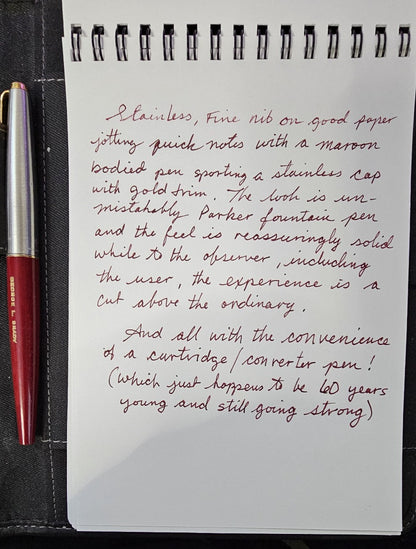 Stainless, Fine nib on good paper
jotting quick notes with a maroon
bodied pen sporting a stainless cap
with gold trim. The look is un-
mistakably Parker fountain pen
and the feel is reassuringly solid
while to the observer, including
the user, the experience is a
cut above the ordinary.
And all with the convenience
of a cartridge/converter pen!
(which just happens to be 60 years
young and still going strong)
GEORGE L. BRADY